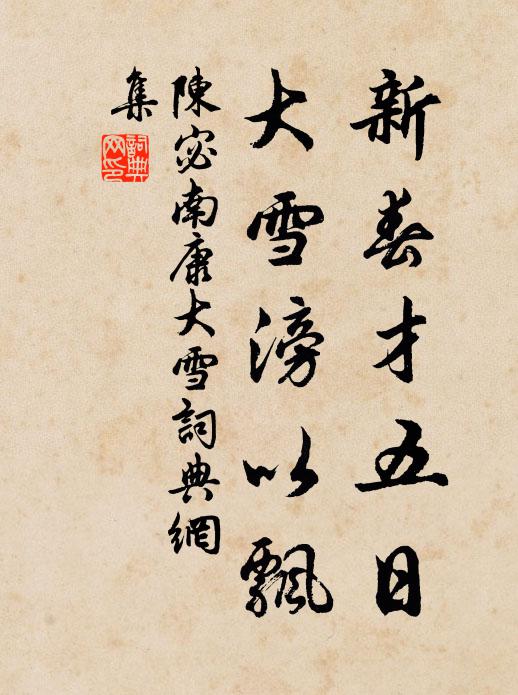 新春才五日
大雪滂以飄
陳宓南康大雪詞典網
集
詞典網印